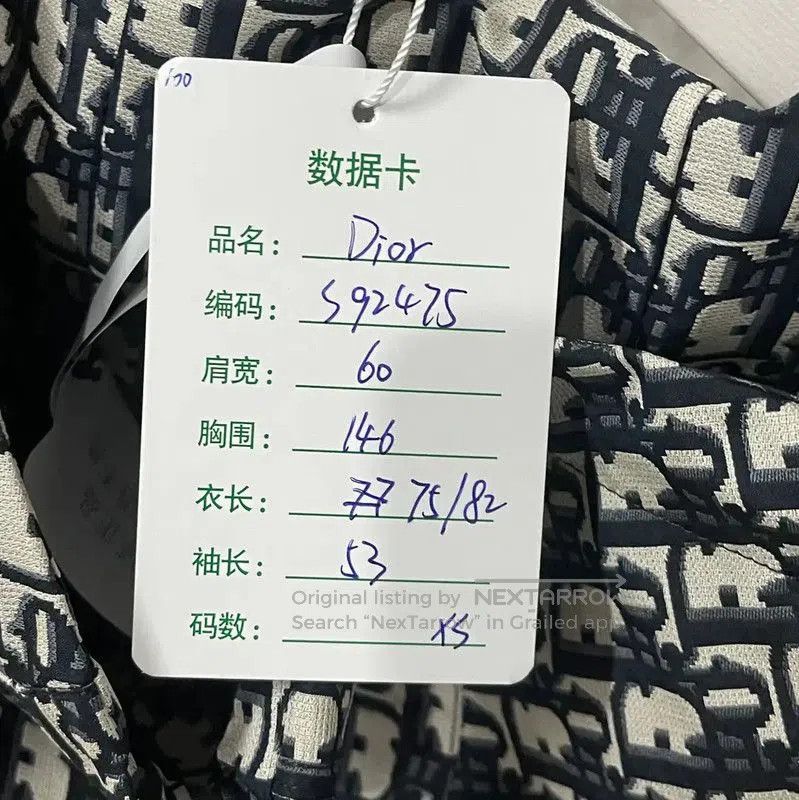 100
数据卡
品名： Dior
编码： S92475
肩宽： 60
胸围： 146
衣长： 77 75/82
袖长： 53
码数： XS
Original listing by NEXTARROW
Search “NexTarrow” in Grailed app